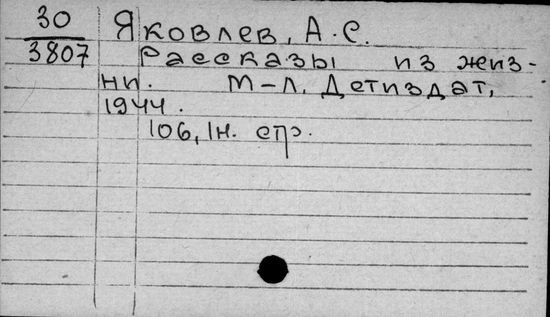 30
3807
Яковлев, А.С.
Рассказы из жиз-
ни. М-Л, Детиздат,
1944.
106, 1н. стр.